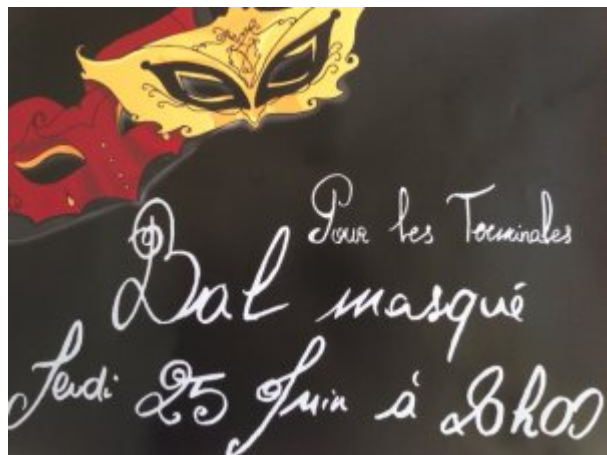 Pour les Terminales
Bal masqué
Jeudi 25 Juin à 20h00